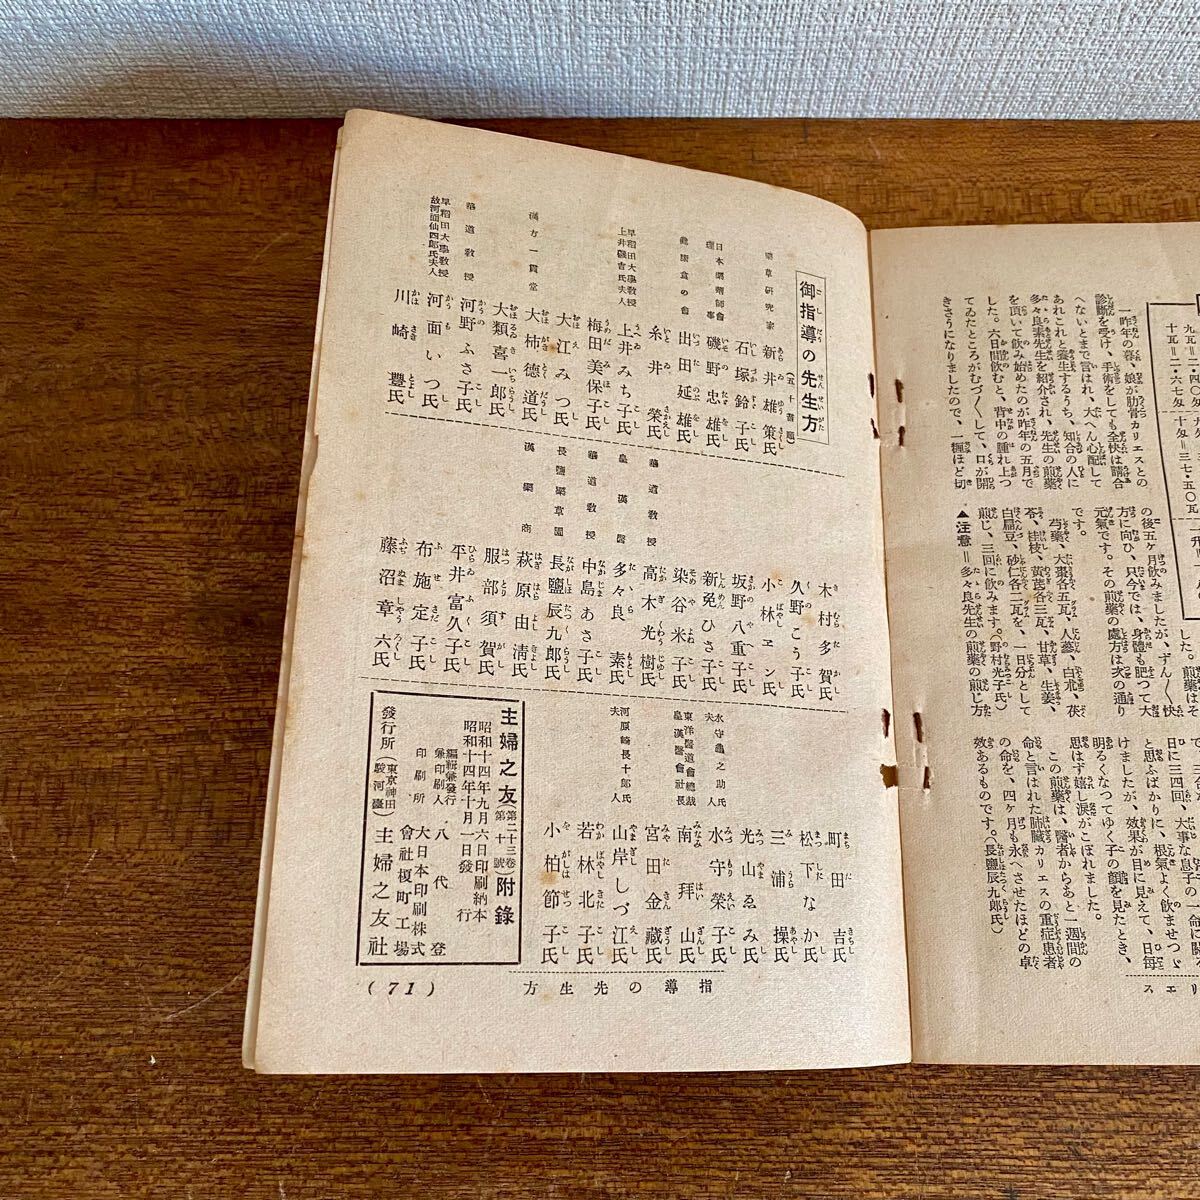 一昨年の暮、娘が肋骨カリエスとの
診斷を受け、手術をしても全快は請合
へないとまで言はれ、大へん心配して
あれこれと養生するうち、知合の人に
多々良素先生を紹介され、先生の煎藥
を頂いて飲み始めたのが昨年の五月で
した。六日間飲むと、背中の腫れ上つ
てゐたところがむづ〱して、口が開
きさうになりましたので、一種ほど切
の後五ヶ月飲みましたが、ずん〱快
方に向ひ、只今では、身體も肥つて大
元氣です。その煎藥の處方は次の通り
です。
芍藥、大棗各五瓦、人蔘、白朮、茯
苓、桂枝、黃芪各三瓦、甘草、生姜、
白扁豆、砂仁各二瓦を、一日分として
煎じ、三回に飲みます。(野村光子氏)
▲注意=多々良先生の煎藥の煎じ方
日に三四回、大事な息子の
と思ふばかりに、根氣よく飲ませつゞ
けましたが、效果が目に見えて、日每
明るくなつてゆく子の顏を見たとき、
思はず嬉し淚がこぼれました。
この煎藥は、醫者からあと一週間の
命と言はれた肺臟カリエスの重症患者
の命を、四ヶ月も永へさせたほどの卓
效あるものです。(長鹽辰九郎氏)
御指導の先生方
(五十音順)
藥草研究家 新井雄策氏
石塚鈴子氏
日本藥劑師會理事 磯野忠雄氏
健康食の會 出田延雄氏
糸井榮氏
早稻田大學教授上井磯吉氏夫人 上井みち子氏
梅田美保子氏
大江みつ氏
漢方一貫堂 大柿德道氏
大類喜一郎氏
華道教授 河野ふさ子氏
早稻田大學教授故河面仙四郎氏夫人 河面いつ氏
川崎豐氏
木村多賀氏
久野こう子氏
小林ヱン氏
坂野八重子氏
新免ひさ子氏
染谷米子氏
華道教授 高木光樹氏
皇漢醫 多々良素氏
華道教授 中島あさ子氏
長鹽藥草園 長鹽辰九郎氏
漢藥商 萩原由淸氏
服部須賀氏
平井富久子氏
布施定子氏
藤沼章六氏
町田吉氏
松下なか氏
三浦操氏
光山ゑみ氏
水守龜之助氏夫人 水守榮子氏
東洋醫道會總裁皇漢醫會社長 南拜山氏
宮田金藏氏
河原崎長十郎氏夫人 山岸しづ江氏
若林北子氏
小柏節子氏
主婦之友(第二十三卷第十號)附錄
昭和十四年九月六日印刷納本
昭和十四年十月一日發行
編輯兼發行兼印刷人 八代登
印刷所 大日本印刷株式會社榎町工場
發行所(東京神田駿河臺)主婦之友社
指導の先生方
(71)